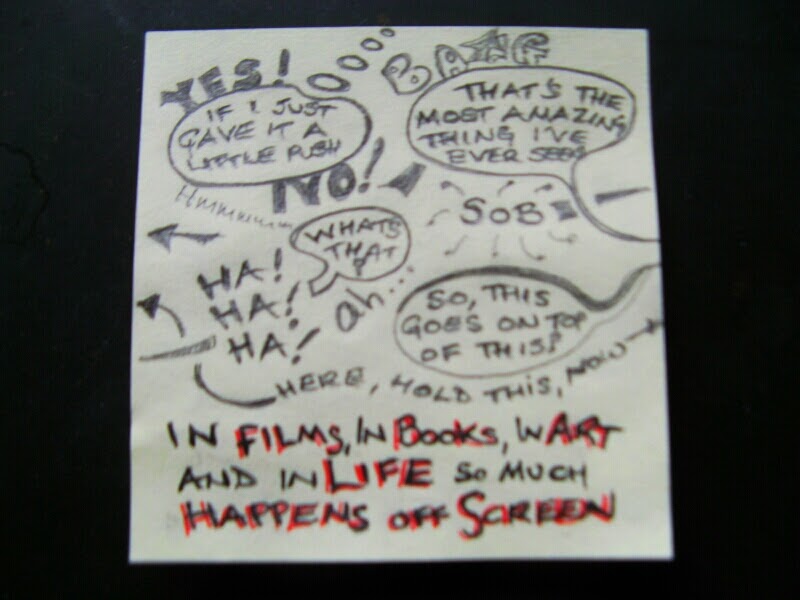 BANG
YES!
IF I JUST
GAVE IT A
LITTLE PUSH
THAT'S THE
MOST AMAZING
THING I'VE
EVER SEEN
NO!
Hmmmmmm
SOB
WHATS
THAT
?
HA!
HA!
HA!
ah...
SO, THIS
GOES ON TOP
OF THIS?
HERE, HOLD THIS, NOW
IN FILMS, IN BOOKS, IN ART
AND IN LIFE SO MUCH
HAPPENS OFF SCREEN